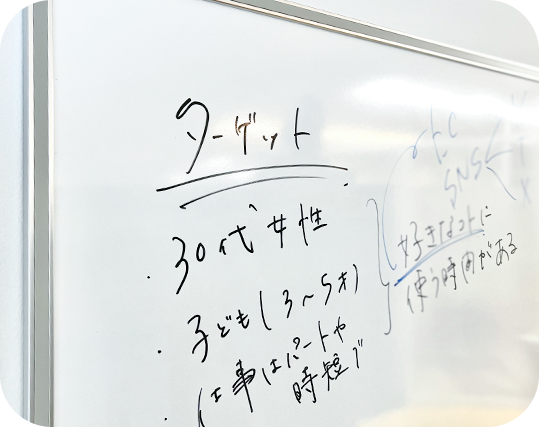 ターゲット
・30代女性
・子ども(3～5才)
・仕事はパートや
時短で
SNS
好きなコトに
使う時間がある